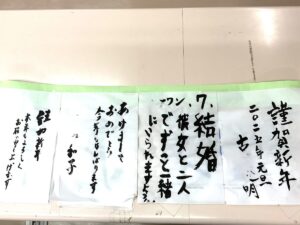 謹賀新年
二〇二五年元旦
明
7.結婚
彼女と二人
でずっと一緒
にいられますよう
あけまして
おめでとう
今年もがんばります
和子
謹賀新年
本年もよろしく
お願い申し上げます